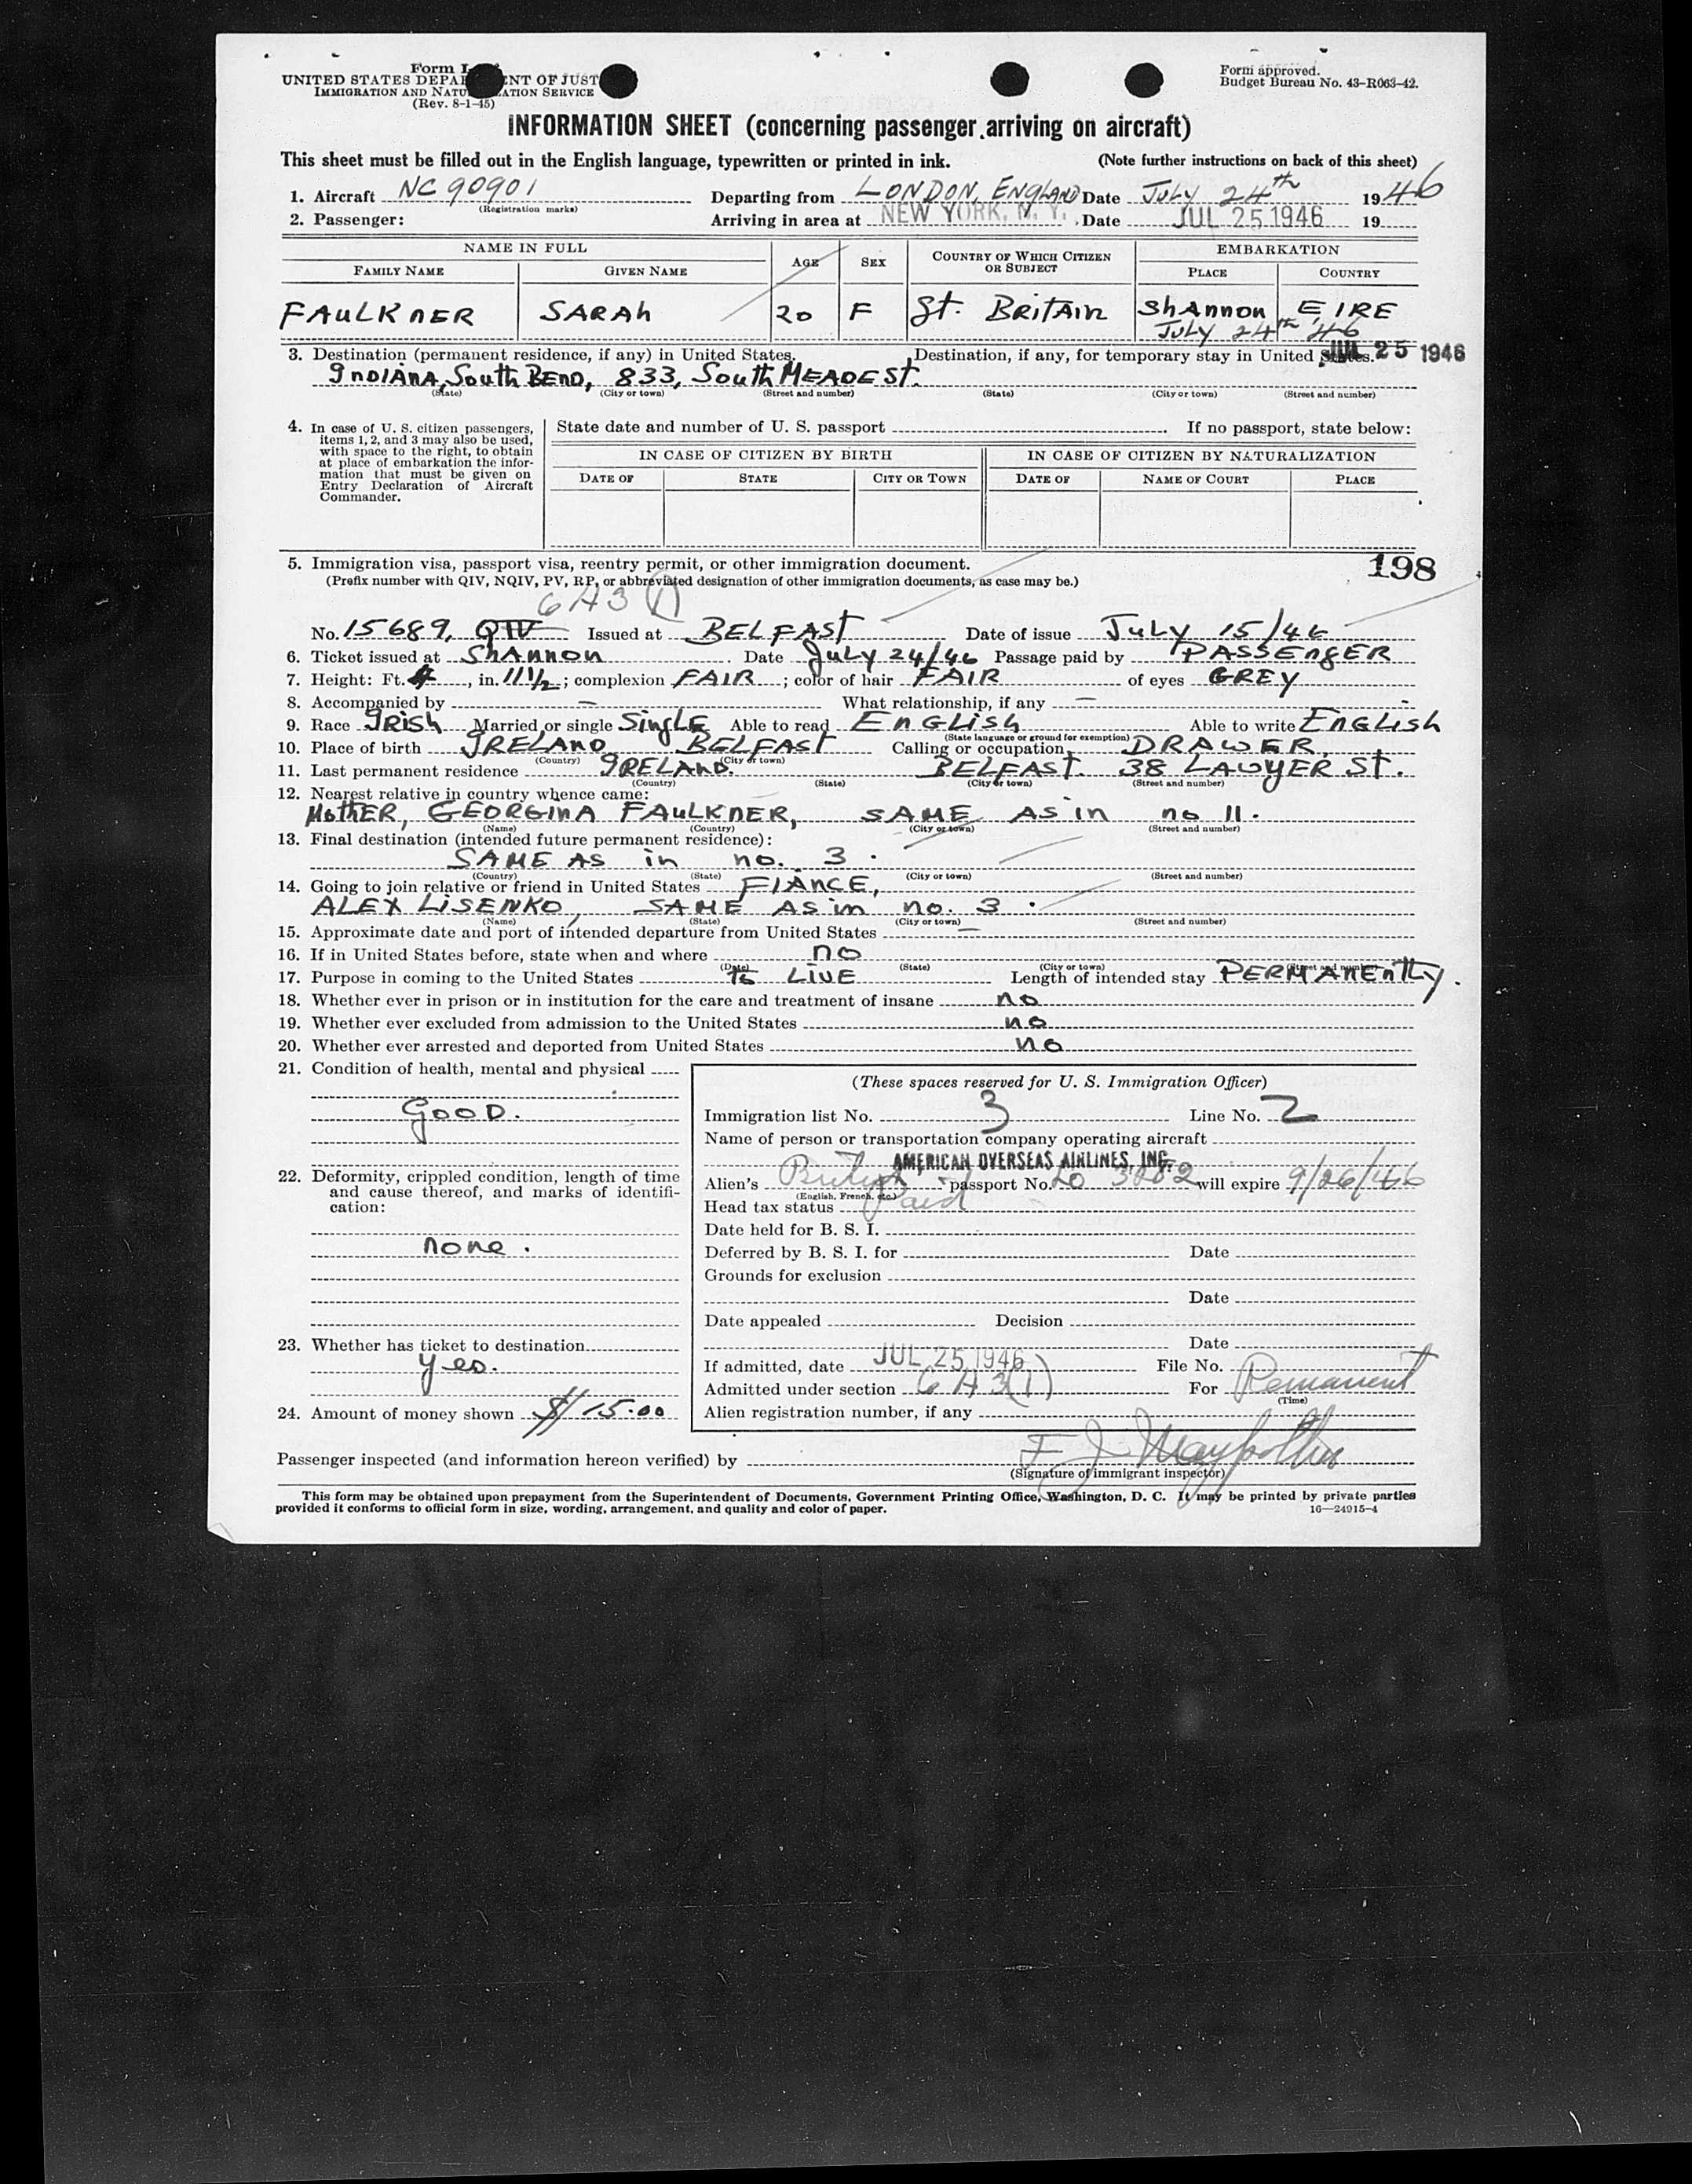 Form I-
UNITED STATES DEPA ENT OF JUST
IMMIGRATION AND NATU ATION SERVICE
(Rev. 8-1-45)
Form approved.
Budget Bureau No. 43-R063-42.
INFORMATION SHEET (concerning passenger arriving on aircraft)
This sheet must be filled out in the English language, typewritten or printed in ink. (Note further instructions on back of this sheet)
1. Aircraft NC 90901 Departing from LONDON, ENGLAND Date JULY 24th 1946
(Registration marks)
2. Passenger: Arriving in area at NEW YORK, N. Y. Date JUL 25 1946 19
NAME IN FULL AGE SEX COUNTRY OF WHICH CITIZEN OR SUBJECT EMBARKATION
FAMILY NAME GIVEN NAME PLACE COUNTRY
FAULKNER SARAH 20 F Gt. BRITAIN SHANNON EIRE
JULY 24th '46
3. Destination (permanent residence, if any) in United States. Destination, if any, for temporary stay in United States. JUL 25 1946
INDIANA, SOUTH BEND, 833, SOUTH MEADE ST.
(State) (City or town) (Street and number) (State) (City or town) (Street and number)
4. In case of U. S. citizen passengers, items 1, 2, and 3 may also be used, with space to the right, to obtain at place of embarkation the information that must be given on Entry Declaration of Aircraft Commander.
State date and number of U. S. passport If no passport, state below:
IN CASE OF CITIZEN BY BIRTH IN CASE OF CITIZEN BY NATURALIZATION
DATE OF STATE CITY OR TOWN DATE OF NAME OF COURT PLACE
5. Immigration visa, passport visa, reentry permit, or other immigration document. 198
(Prefix number with QIV, NQIV, PV, RP, or abbreviated designation of other immigration documents, as case may be.)
6A3 (1)
No. 15689, QIV Issued at BELFAST Date of issue JULY 15/46
6. Ticket issued at SHANNON Date JULY 24/46 Passage paid by PASSENGER
7. Height: Ft. 4, in. 11 1/2; complexion FAIR; color of hair FAIR of eyes GREY
8. Accompanied by — What relationship, if any —
9. Race IRISH Married or single SINGLE Able to read ENGLISH Able to write ENGLISH
(State language or ground for exemption)
10. Place of birth IRELAND BELFAST Calling or occupation DRAWER.
(Country) (City or town)
11. Last permanent residence IRELAND. BELFAST. 38 LAWYER ST.
(Country) (State) (City or town) (Street and number)
12. Nearest relative in country whence came:
MOTHER, GEORGINA FAULKNER, SAME AS in no 11.
(Name) (Country) (City or town) (Street and number)
13. Final destination (intended future permanent residence):
SAME AS in no. 3.
(Country) (State) (City or town) (Street and number)
14. Going to join relative or friend in United States FIANCE,
ALEX LISENKO, SAME AS in no. 3.
(Name) (State) (City or town) (Street and number)
15. Approximate date and port of intended departure from United States —
16. If in United States before, state when and where no
(Date) (State) (City or town) (Street and number)
17. Purpose in coming to the United States to LIVE Length of intended stay PERMANENTLY.
18. Whether ever in prison or in institution for the care and treatment of insane no
19. Whether ever excluded from admission to the United States no
20. Whether ever arrested and deported from United States no
21. Condition of health, mental and physical
GOOD.
22. Deformity, crippled condition, length of time and cause thereof, and marks of identification:
none.
23. Whether has ticket to destination
yes.
24. Amount of money shown $15.00
(These spaces reserved for U. S. Immigration Officer)
Immigration list No. 3 Line No. 2
Name of person or transportation company operating aircraft
AMERICAN OVERSEAS AIRLINES, INC.
Alien's British passport No. LO 3282 will expire 9/26/46
(English, French, etc.)
Head tax status Paid
Date held for B. S. I.
Deferred by B. S. I. for Date
Grounds for exclusion
Date
Date appealed Decision
Date
If admitted, date JUL 25 1946 File No.
Admitted under section 6A3(1) For Permanent
(Time)
Alien registration number, if any
Passenger inspected (and information hereon verified) by F J
(Signature of immigrant inspector)
This form may be obtained upon prepayment from the Superintendent of Documents, Government Printing Office, Washington, D. C. It may be printed by private parties
provided it conforms to official form in size, wording, arrangement, and quality and color of paper. 16—24915-4